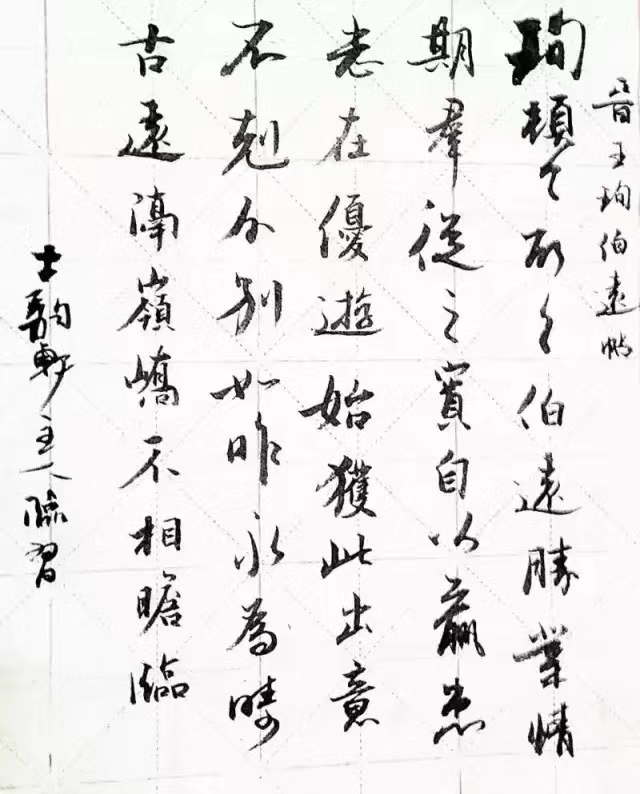 晉王珣伯遠帖
珣頓々頓々伯遠勝業情
期羣從之寶自以羸患
志在優遊始獲此出意
不剋分別如昨永為疇
古遠隔嶺嶠不相瞻臨
士駒軒主人臨習